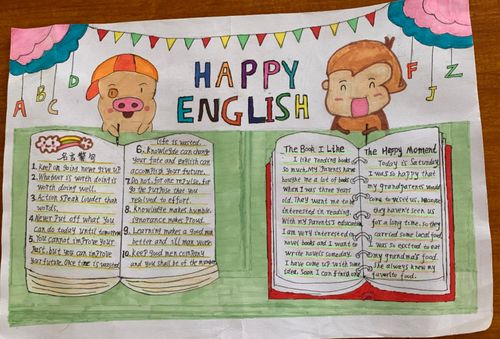 A
B
C
D
HAPPY
ENGLISH
F
J
Z
名言警句
1. Keep on going never give up.
2. Whatever is worth doing is
worth doing well.
3. Action speak louder than
words.
4. Never put off what you
can do today until tomorrow
5. You cannot improve your
past, but you can improve
your future. Once time is wasted
life is wasted.
6. Knowledge can change
your fate and english can
accomplish your future.
7. Do not, for one repulse, for
go the purpose that you
resolved to effort.
8. Knowledge makes humble,
ignorance makes proud.
9. Learning makes a good man
better and ill man worse.
10. Keep good men company
and you shall be of the number
The Book I Like
I like reading books
so much. My Parents have
bought me a lot of books
when I was three years
old. They want me to be
interested in reading.
With my Parents's education
I am very interested in
novel books and I want to
write novels someday.
I have come up with some
idea. Soon I can finish one
The Happy Moment
Today is Saturday,
I was so happy that
my grandparents would
come to visit us. Because
they haven't seen us
for a long time. So they
carried some local food
I was so excited to eat
my grandma's food.
She always knew my
favorite food.